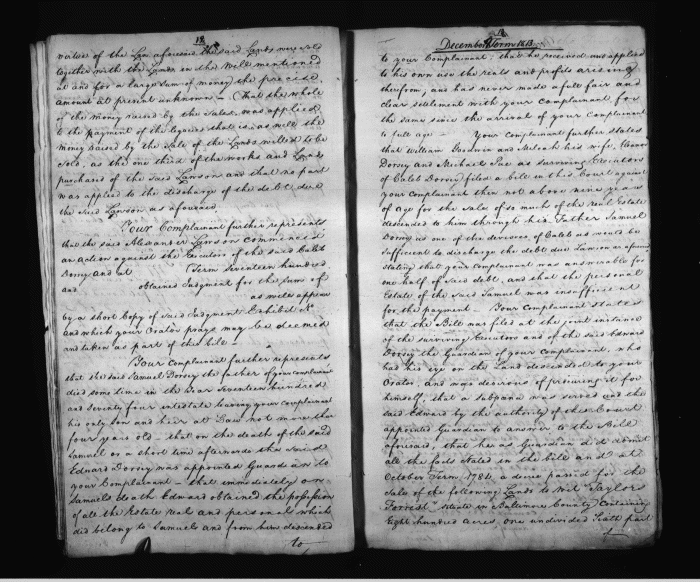 12
virtue of the Law aforesaid the said Lands were sold
together with the Lands in the Will mentioned
at and for a large sum of money the precise
amount at present unknown - That the whole
of the money raised by the Sales, was applied
to the payment of the legacies that is, as well the
money raised by the Sale of the Lands willed to be
sold, as the one third of the works and Lands
purchased of the said Lawson and that no part
was applied to the discharge of the debt due
the said Lawson as aforesaid.
Your Complainant further represents
that the said Alexander Lawson commenced
an action against the Executors of the said Caleb
Dorsey and at Term Seventeen hundred
and obtained Judgment for the sum of
as will appear
by a short Copy of said Judgment, Exhibit A
and which your Orator prays may be deemed
and taken as part of this bill -
Your Complainant further represents
that the said Samuel Dorsey the father of your complainant
died some time in the Year Seventeen hundred
and seventy four intestate leaving your complainant
his only son and heir at Law not more than
four years old - that on the death of the said
Samuel or a short time afterwards the said
Edward Dorsey was appointed Guardian to
your Complainant - that immediately on
Samuels death Edward obtained the possession
of all the Estate real and personal which
did belong to Samuels and from him descended
to
December Term 1813
to your Complainant, that he received and applied
to his own use the rents and profits arising
therefrom, and has never made a full fair and
clear settlement with your complainant for
the same since the arrival of your Complainant
to full age - Your Complainant further states
that William Goodwin and Milcah his wife, Eleanor
Dorsey and Michael Pue as surviving Executors
of Caleb Dorsey filed a bill in this Court against
your complainant then not above nine years
of age for the sale of so much of the real Estate
descended to him through his Father Samuel
Dorsey as one of the devisees of Caleb as would be
sufficient to discharge the debt due Lawson as aforesaid
stating that your complainant was answerable for
one half of said debt, and that the personal
Estate of the said Samuel was insufficient
for the payment - Your Complainant states
that the Bill was filed at the joint instance
of the surviving Executors and of the said Edward
Dorsey the Guardian of your complainant, who
had his eye on the Land descended to your
Orator, and was desirous of procuring it for
himself, that a subpœna was served and the
said Edward by the authority of this Court
appointed Guardian to answer to the Bill
aforesaid, that he as Guardian did admit
all the facts stated in the bill and at
October Term 1784, a decree passed for the
Sale of the following Lands to wit Taylors
Forrest, situate in Baltimore County Containing
Eight hundred acres, one undivided Sixth part
of